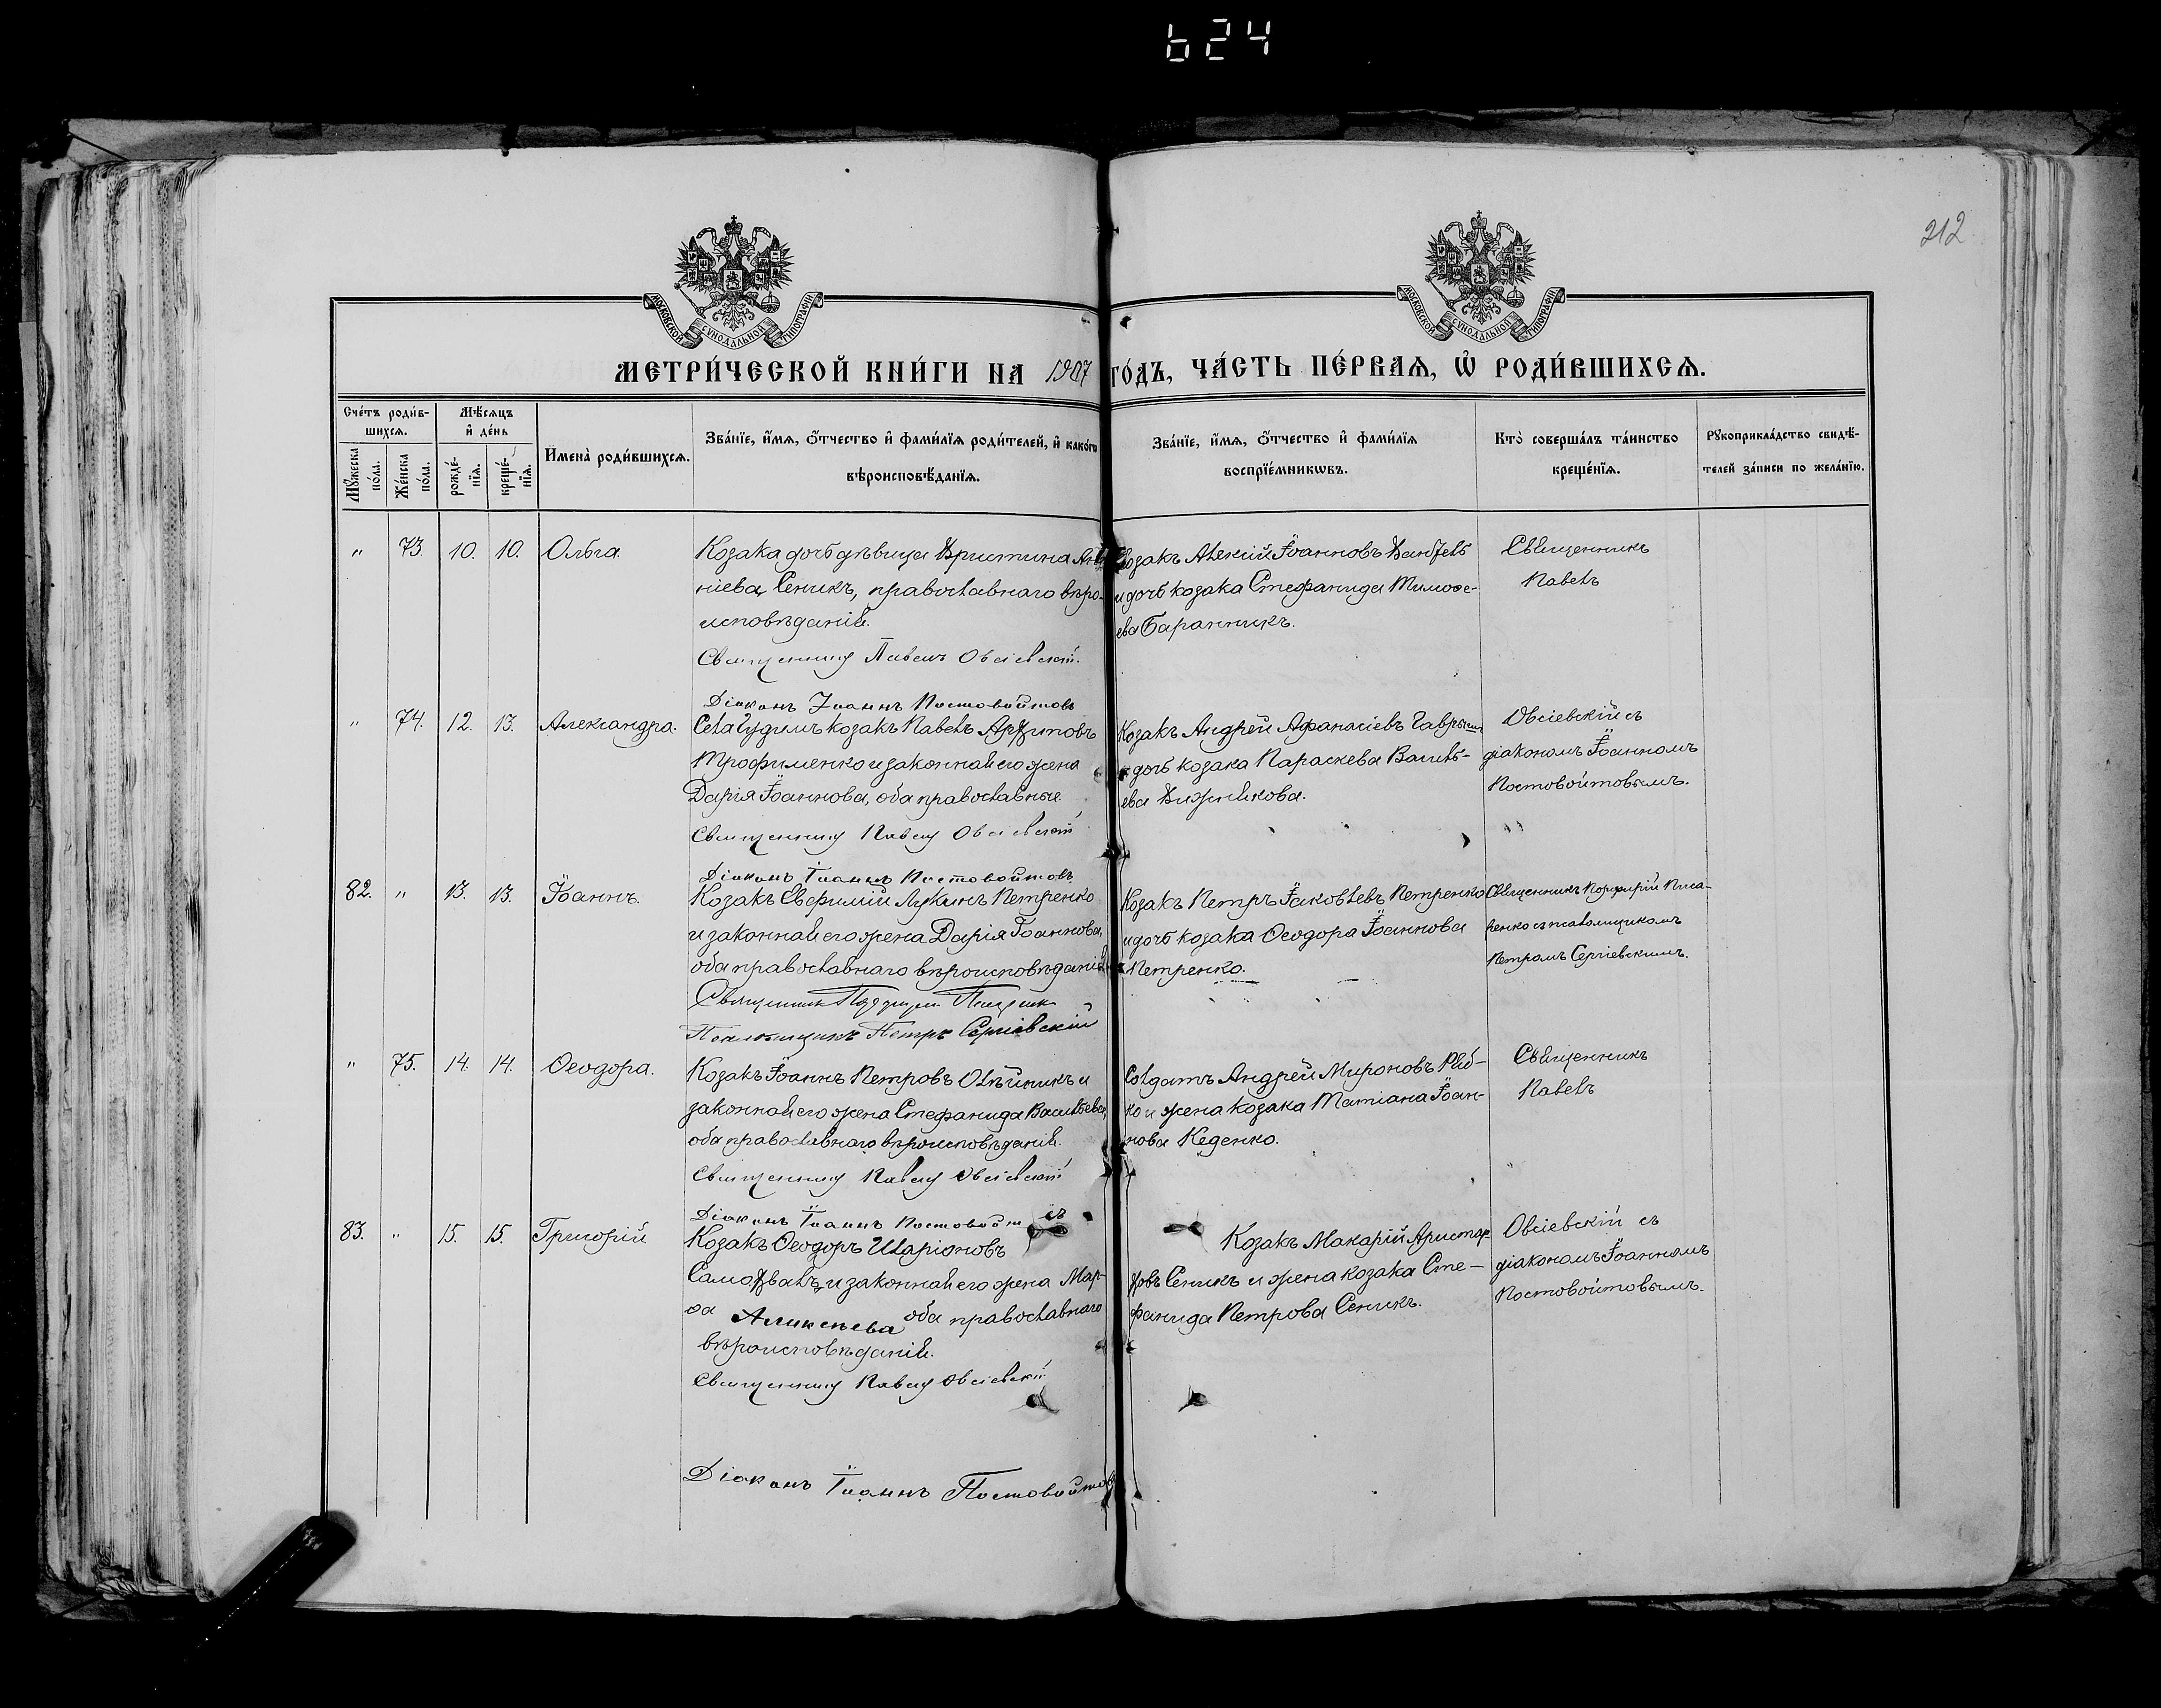 624
212
МОСКОВСКОЙ СѴНОДАЛЬНОЙ ТИПОГРАФІИ
МОСКОВСКОЙ СѴНОДАЛЬНОЙ ТИПОГРАФІИ
МЕТРИ́ЧЕСКОЙ КНИ́ГИ НА 1907 ГО́ДЪ, ЧА́СТЬ ПЕ́РВАѦ, Ѡ҆ РОДИ́ВШИХСѦ.
Сче́тъ роди́в-
шихсѧ.
Мꙋ́жеска по́ла.
Же́нска по́ла.
Мѣ́сѧцъ и҆ де́нь
рожде́-нїѧ.
креще́-нїѧ.
И҆мена̀ роди́вшихсѧ.
Зва́нїе, и҆́мѧ, ѻ҆́тчество и҆ фами́лїѧ роди́телей, и҆ како́гѡ
вѣроисповѣ́данїѧ.
Зва́нїе, и҆́мѧ, ѻ҆́тчество и҆ фами́лїѧ
воспрїе́мникѡвъ.
Кто̀ соверша́лъ та́инство
креще́нїѧ.
Рꙋкоприкла́дство свидѣ́-
телей за́писи по жела́нїю.
" 73. 10. 10. Ольга.
Козака дочь дѣвица Христина
ніева Сеникъ, православнаго вѣро-
исповѣданія.
Священникъ Павелъ Овсіевскій
Діаконъ Іоаннъ Постовойтовъ
Козакъ Алексій Іоанновъ
и дочь козака Стефанида Тимофе-
ева Баранникъ.
Священникъ
Павелъ
" 74. 12. 13. Александра.
козакъ Павелъ
Трофименко и законная его жена
Дарія Іоаннова, оба православные.
Священникъ Павелъ Овсіевскій
Діаконъ Іоаннъ Постовойтовъ
Козакъ Андрей Афанасіевъ
и дочь козака Параскева Василь-
ева Хижнякова.
Овсіевскій съ
діакономъ Іоанномъ
Постовойтовымъ.
82. " 13. 13. Іоаннъ.
Козакъ Евфимій Лукинъ Петренко
и законная его жена Дарія Іоаннова,
оба православнаго вѣроисповѣданія.
Священникъ Порфирій
Псаломщикъ Петръ Сергіевскій
Козакъ Петръ Іаковлевъ Петренко
и дочь козака Ѳеодора Іоаннова
Петренко.
Священникъ Порфирій Писа-
ренко съ псаломщикомъ
Петромъ Сергіевскимъ.
" 75. 14. 14. Ѳеодора.
Козакъ Іоаннъ Петровъ Олѣйникъ и
законная его жена Стефанида Васильева,
оба православнаго вѣроисповѣданія.
Священникъ Павелъ Овсіевскій
Діаконъ Іоаннъ Постовойтовъ
Солдатъ Андрей Мироновъ Ряб-
ко и жена козака Татіана Іоан-
нова Кеденко.
Священникъ
Павелъ
83. " 15. 15. Григорій
Козакъ Ѳеодоръ Иларіоновъ
Самохвалъ и законная его жена Мар-
ѳа Алексѣева оба православнаго
вѣроисповѣданія.
Священникъ Павелъ Овсіевскій
Діаконъ Іоаннъ Постовойтовъ
Козакъ Макарій Аристар-
ховъ Сеникъ и жена козака Сте-
фанида Петрова Сеникъ.
Овсіевскій съ
діакономъ Іоанномъ
Постовойтовымъ.